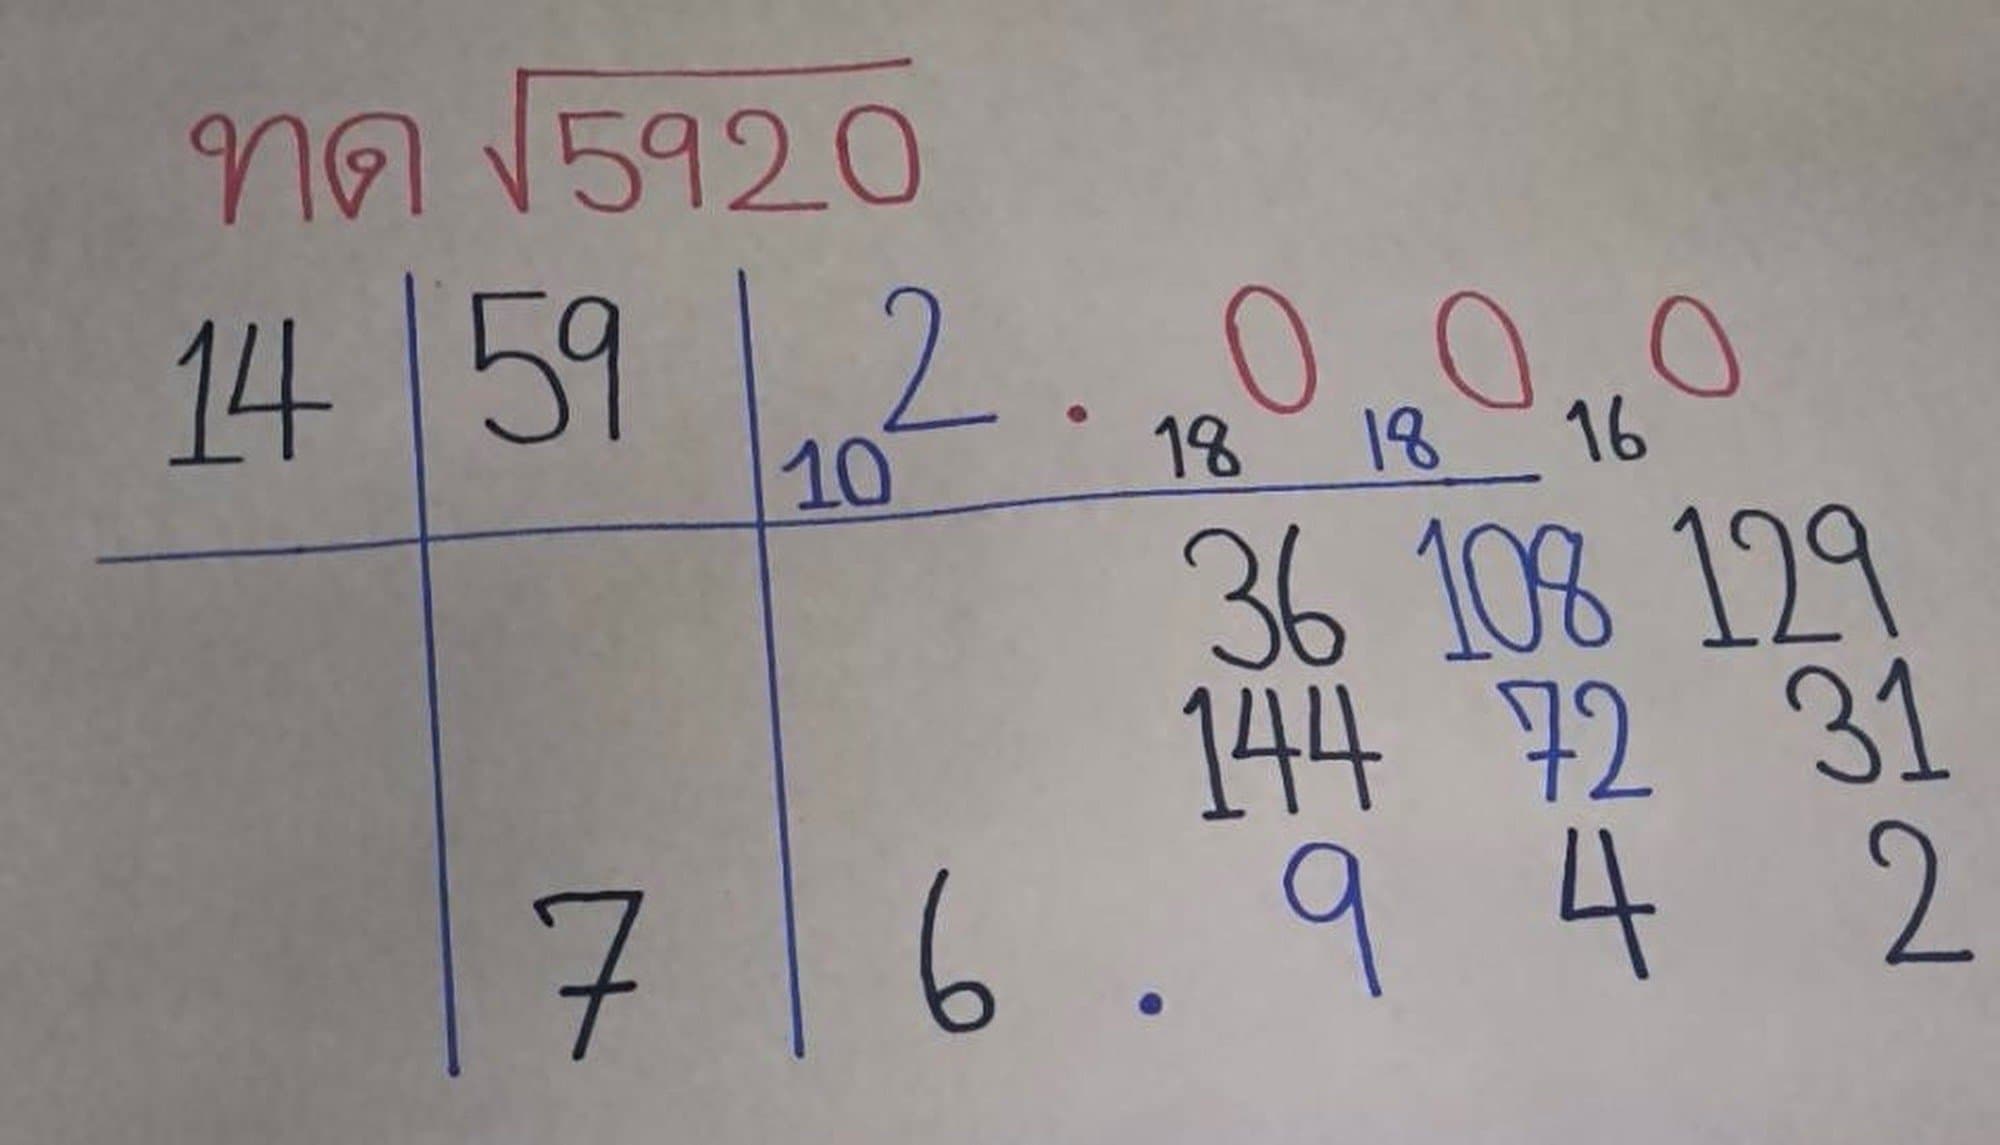 ทด √5920
14 59 2 . 0 0 0
10 18 18 16
36 108 129
144 72 31
7 6 . 9 4 2